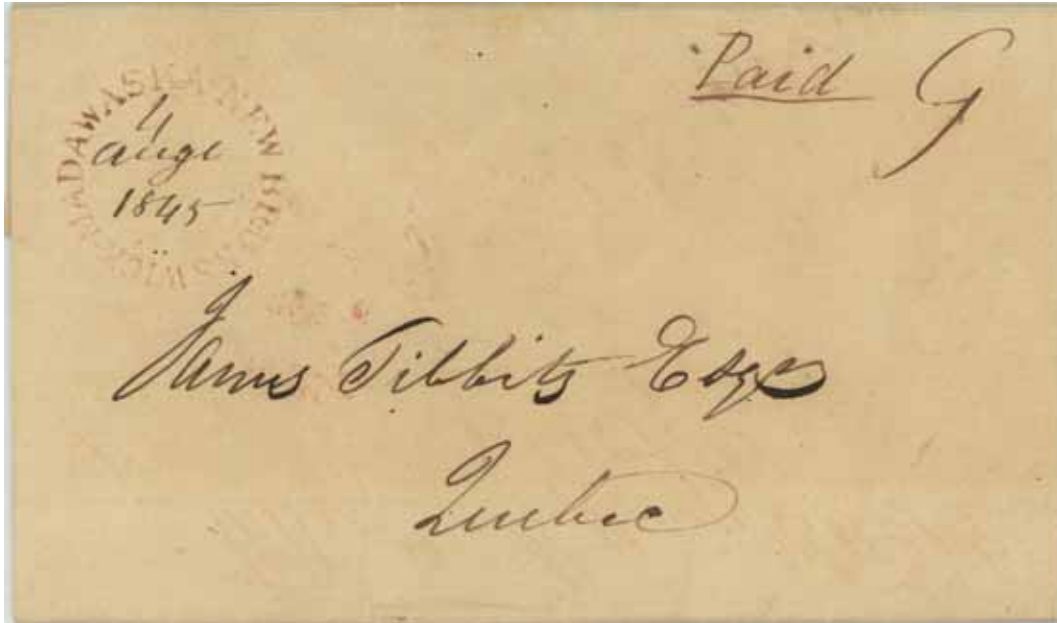 Paid 9
MADAWASKA NEW BRUNSWICK
4
Augt
1845
James Tibbits Esqr
Quebec